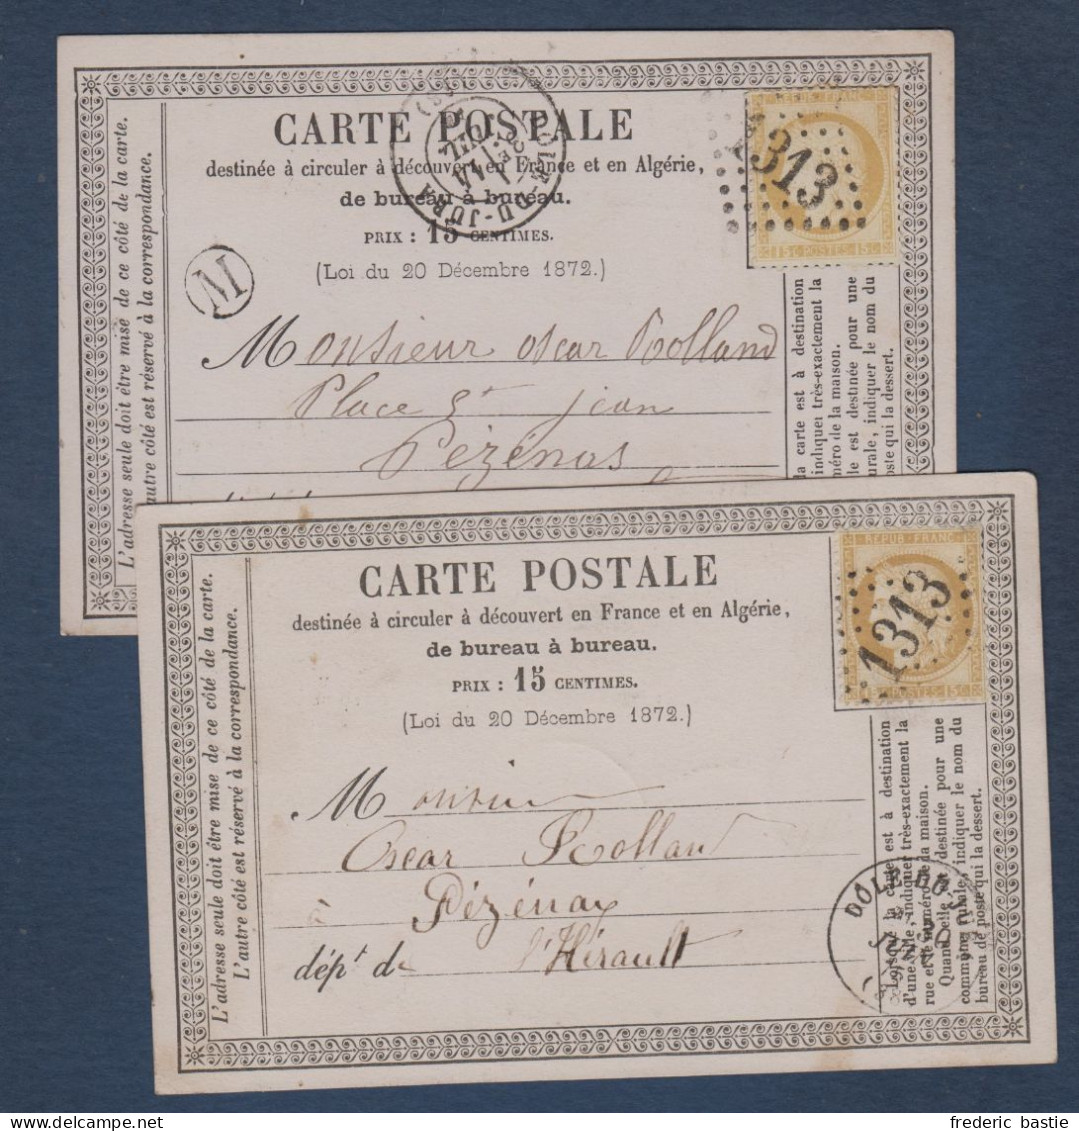 CARTE POSTALE
destinée à circuler à découvert en France et en Algérie,
de bureau à bureau.
PRIX : 15 CENTIMES.
(Loi du 20 Décembre 1872.)
M
Monsieur Oscar Rolland
Place St Jean
Pézénas
L'adresse seule doit être mise de ce côté de la carte.
L'autre côté est réservé à la correspondance.
REPUB FRANC
15 C POSTES 15 C
1313
DU-JURA
la carte est à destination
indiquer très-exactement la
méro de la maison.
le est destinée pour une
urale, indiquer le nom du
oste qui la dessert.
CARTE POSTALE
destinée à circuler à découvert en France et en Algérie,
de bureau à bureau.
PRIX : 15 CENTIMES.
(Loi du 20 Décembre 1872.)
Monsieur
Oscar Rolland
à Pézénas
dépt de l'Hérault
L'adresse seule doit être mise de ce côté de la carte.
L'autre côté est réservé à la correspondance.
REPUB FRANC
15 C POSTES 15 C
1313
DOLE DU
Lorsque la carte est à destination
d'une ville, indiquer très-exactement la
rue et le numéro de la maison.
Quand elle est destinée pour une
commune rurale, indiquer le nom du
bureau de poste qui la dessert.
frederic bastie